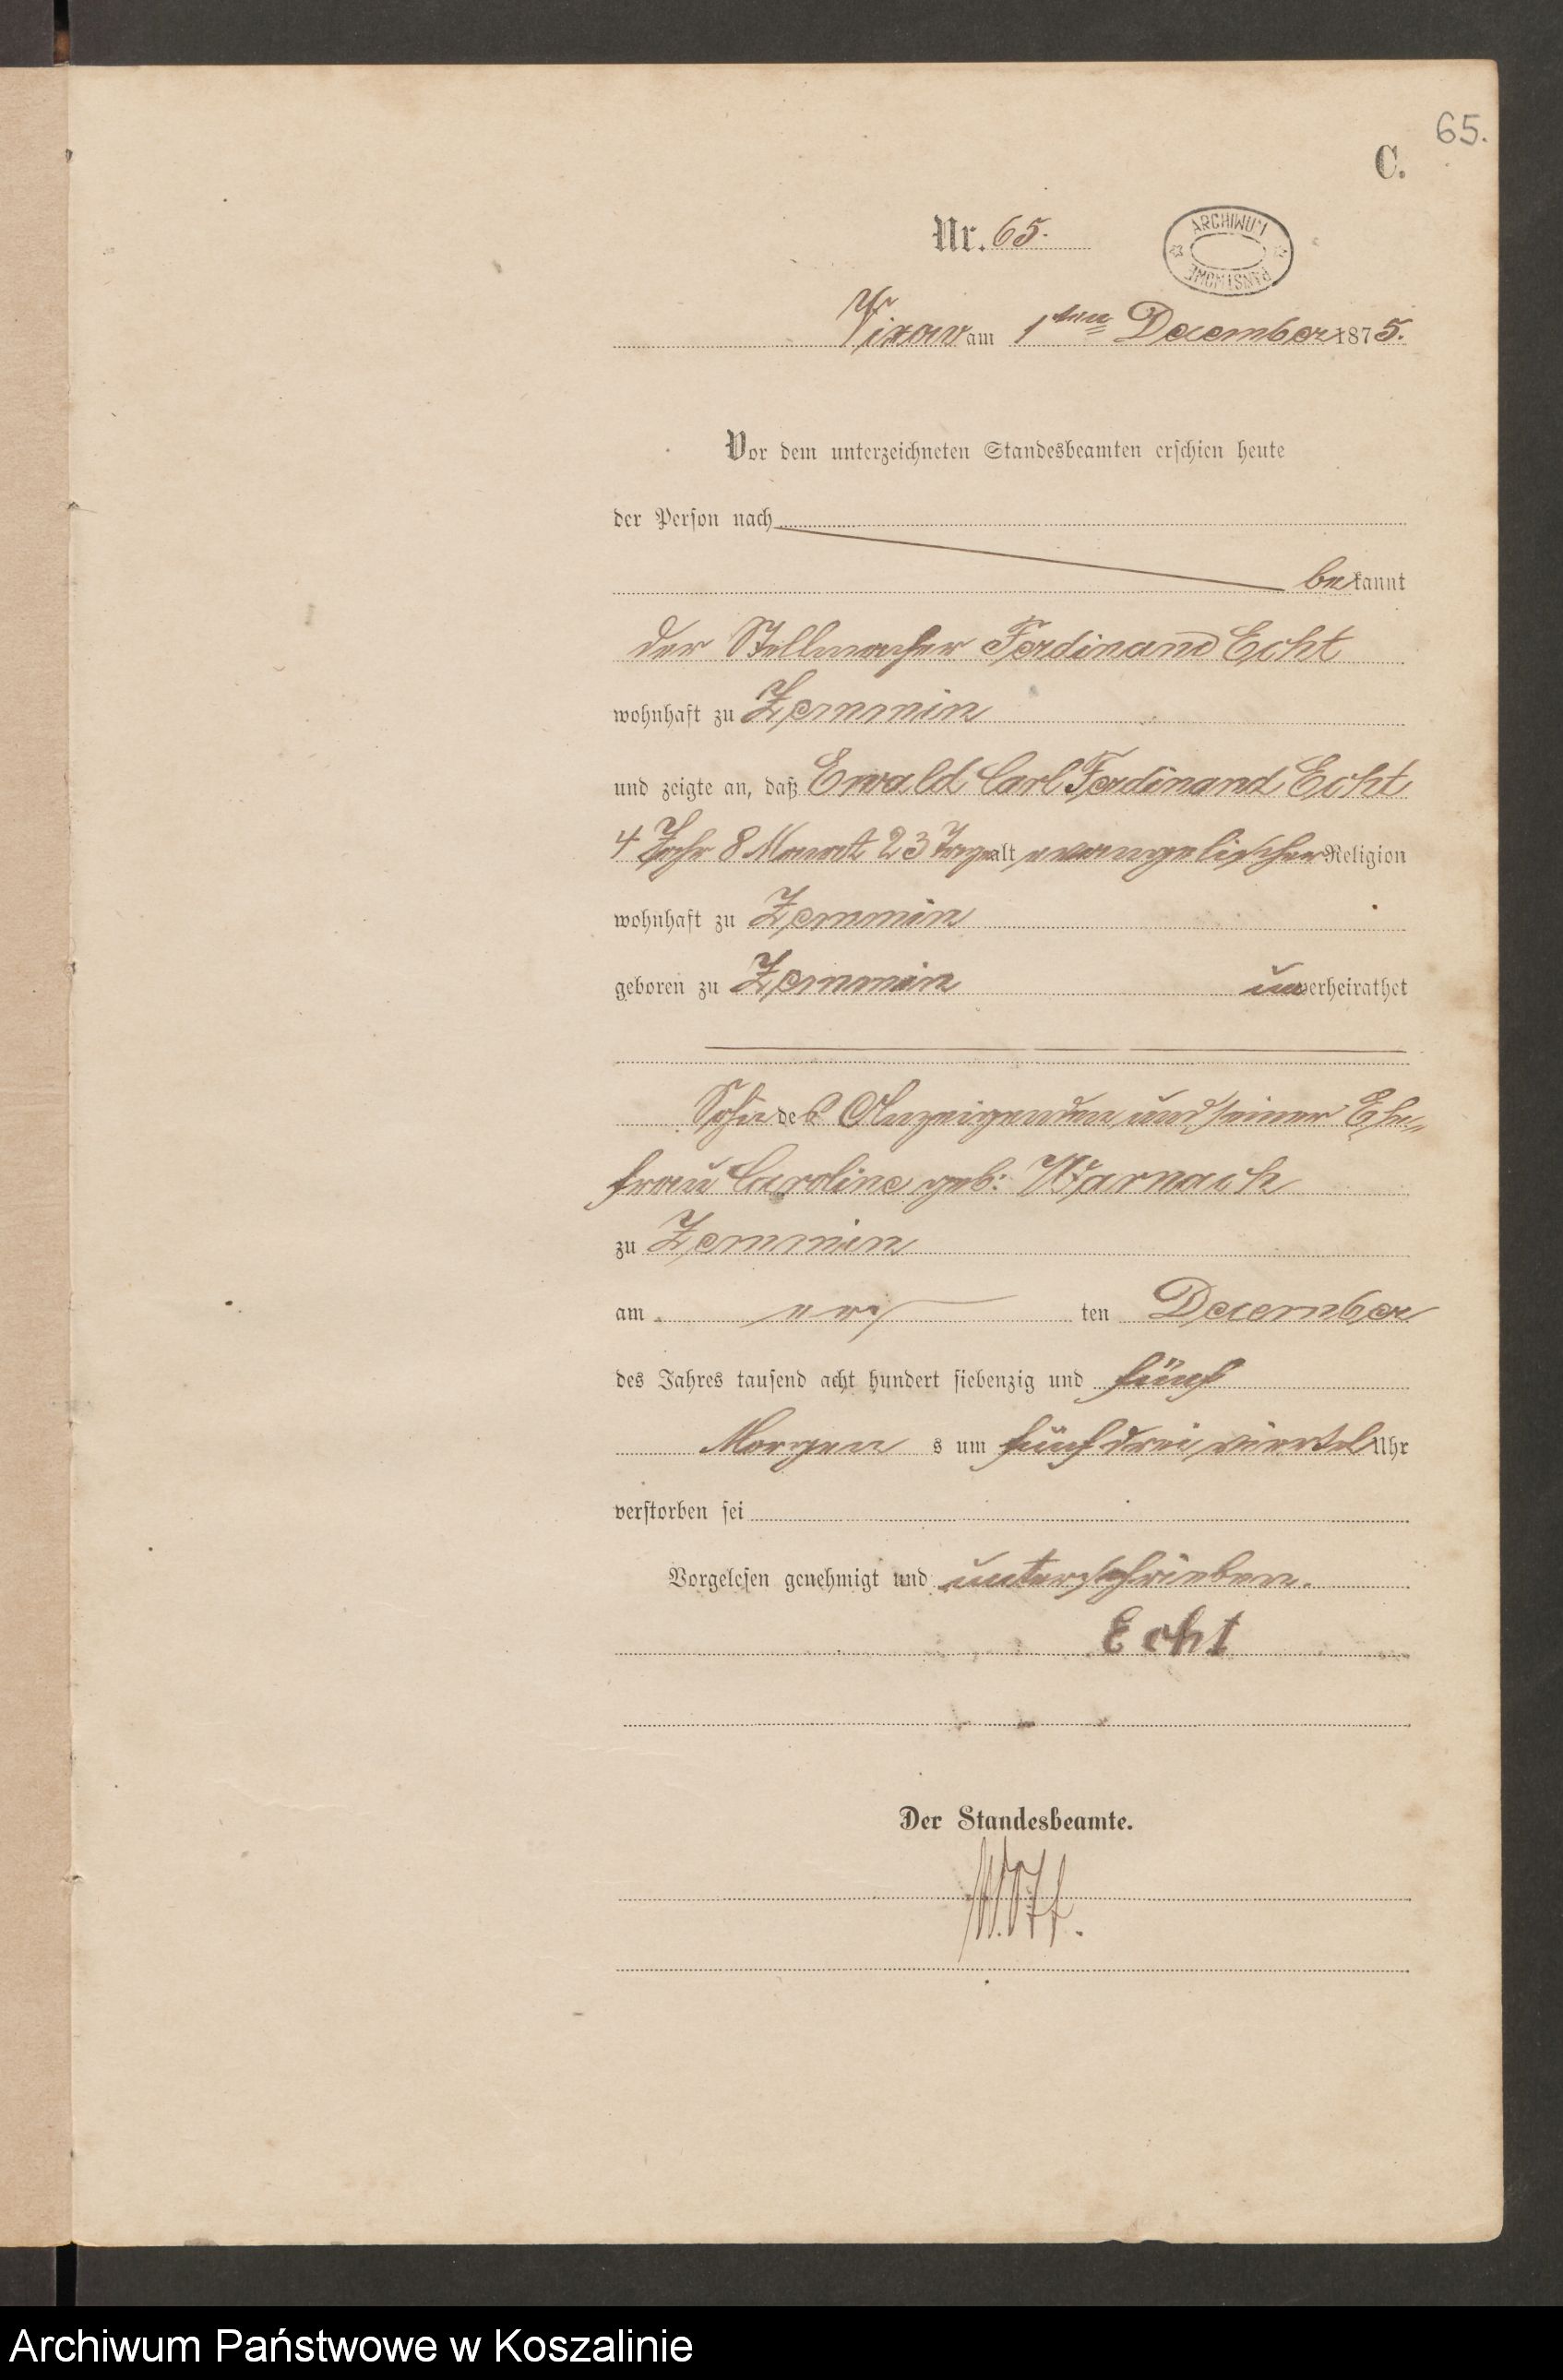 65.
C.
ARCHIWUM PAŃSTWOWE
Nr. 65.
Vixow am 1ten December 1875.
Vor dem unterzeichneten Standesbeamten erschien heute
der Person nach
bekannt
der Stellmacher Ferdinand Echt
wohnhaft zu Zemmin
und zeigte an, daß Ewald Carl Ferdinand Echt
4 Jahr 8 Monat 23 Tage alt evangelischer Religion
wohnhaft zu Zemmin
geboren zu Zemmin unverheirathet
Sohn des Anzeigenden und seiner Ehe„
frau Caroline geb: Warnach
zu Zemmin
am ersten December
des Jahres tausend acht hundert siebenzig und fünf
Morgens um fünf drei viertel Uhr
verstorben sei
Vorgelesen genehmigt und unterschrieben.
Echt
Der Standesbeamte.
Archiwum Państwowe w Koszalinie